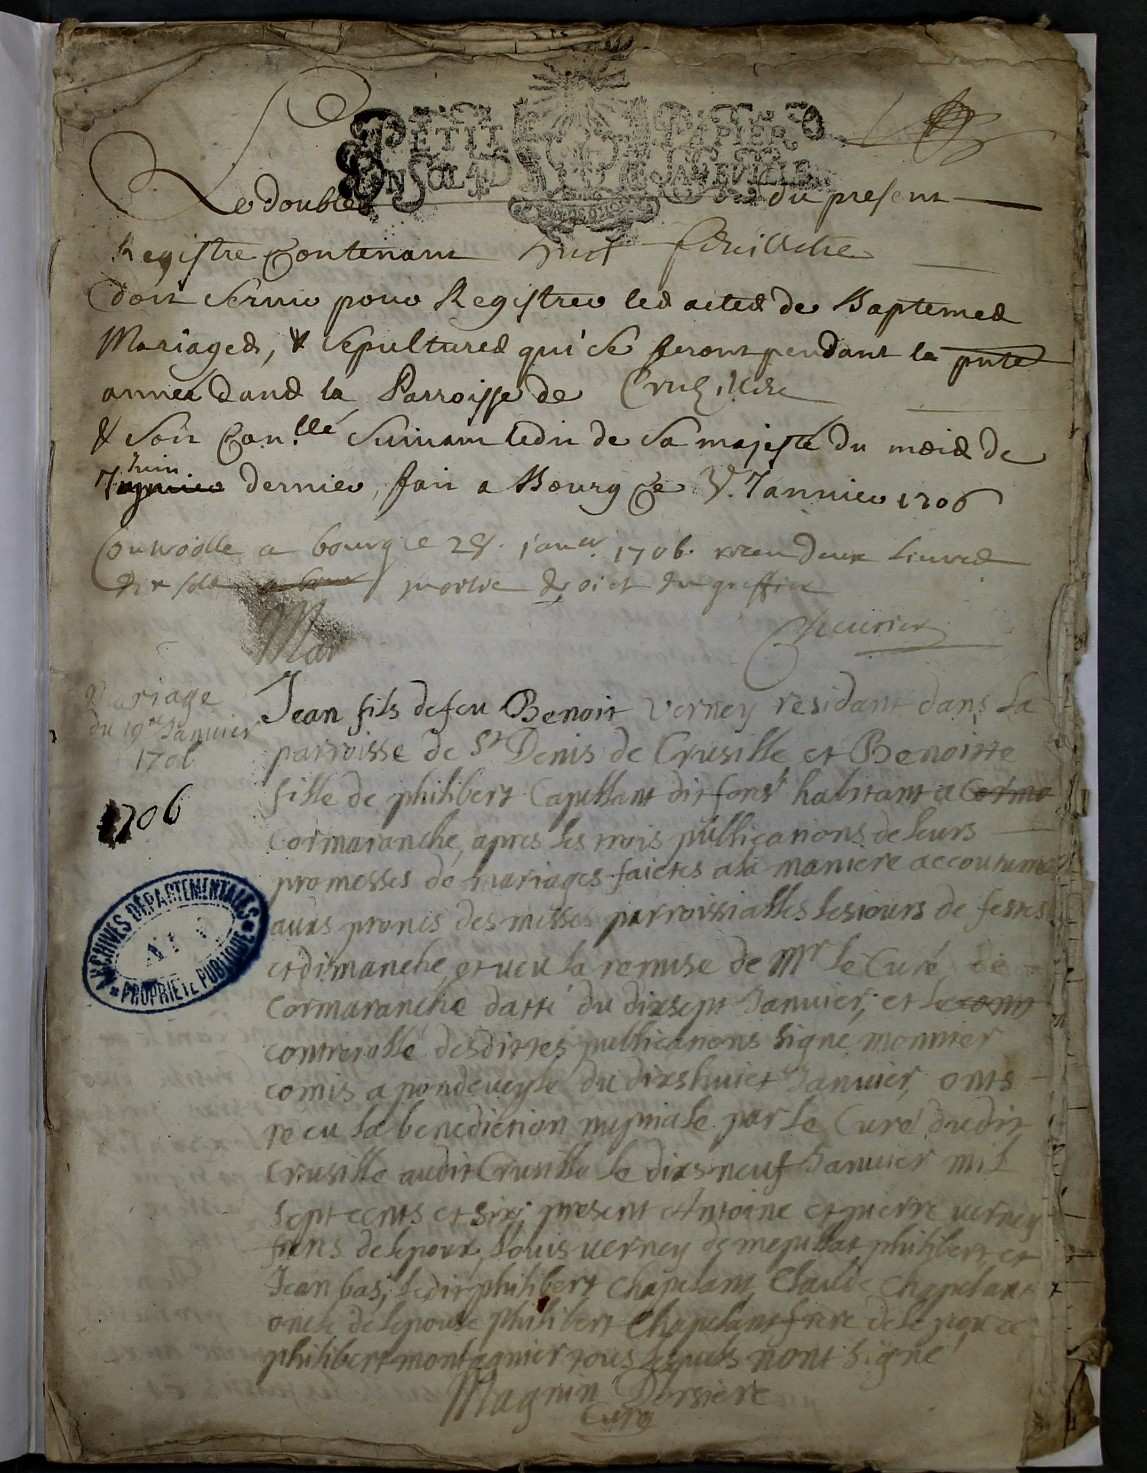 PETIT PAPIER
EN SOL 4 D LA FEUILLE
Le double du present
Registre Contenant huit feuillets
doit servir pour Registrer les actes de Baptemes
Mariages, & sepultures qui se feront pendant la pnte
année dans la Parroisse de Cruzillie
& soit Con.llé suivant ledit de sa majesté du mois de
Juin
Janvier dernier, fait a Bourg ce Janvier 1706
Controlle a bourg le 28. janer. 1706. receu deux livres
dix sols droict du greffier
Mar
Mariage
du 19me Janvier
1706
1706
Jean fils de feu Benoit Verney residant dans la
parroisse de St Denis de Crusille et Benoitte
fille de philibert Capellant dit habitant a Corma
Cormaranche, apres les trois publications de leurs
promesses de mariages faictes a la maniere accoutume
aux prones des messes parroissialles les jours de festes
et dimanche, et veu la remise de Mr le Curé de
Cormaranche datté du dixsept Janvier, et le cont
controlle desdittes publications signe monnier
comis a pondeveyle du dixshuict Janvier, onts
receu la benediction nuptiale par le Curé dudit
Crusille audit Crusille le dixsneuf Janvier mil
sept cents et six; present Antoine et pierre verney
frers de lepoux, Louis verney de philibert et
Jean bas, ledit philibert Chapelant, Claude Chapelant
oncle de lepouse philibert Chapelant frere de lepouse
philibert montagnier tous lesquels nont signé
Magnin Dorsiere
Curé
ARCHIVES DÉPARTEMENTALES
AIN
PROPRIÉTÉ PUBLIQUE